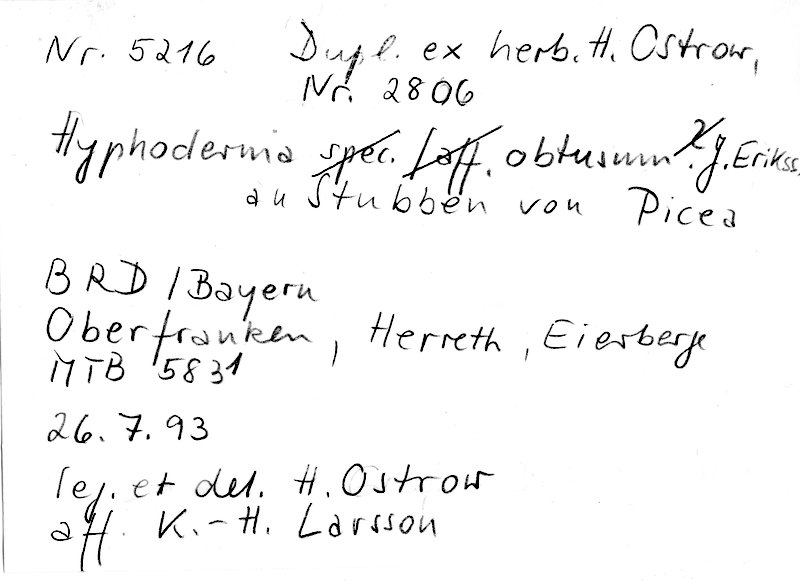 Nr. 5216 Dupl. ex herb. H. Ostrow,
Nr. 2806
Hyphoderma spec. (aff. obtusum.) J. Erikss.
an Stubben von Picea
BRD / Bayern
Oberfranken, Herreth, Eierberge
MTB 5831
26. 7. 93
leg. et det. H. Ostrow
aff. K.-H. Larsson